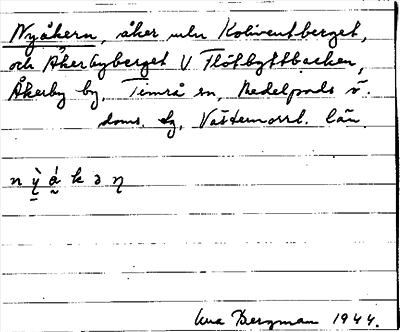 Nyåkern, åker mln Koliventberget,
och Åkerbyberget V Flötbyttbacken,
Åkerby by, Timrå sn, Medelpads v.
doms. sg, Västernorrl. län.
n ỳ̠ á̰ k ə ŋ
Bergman 1944.